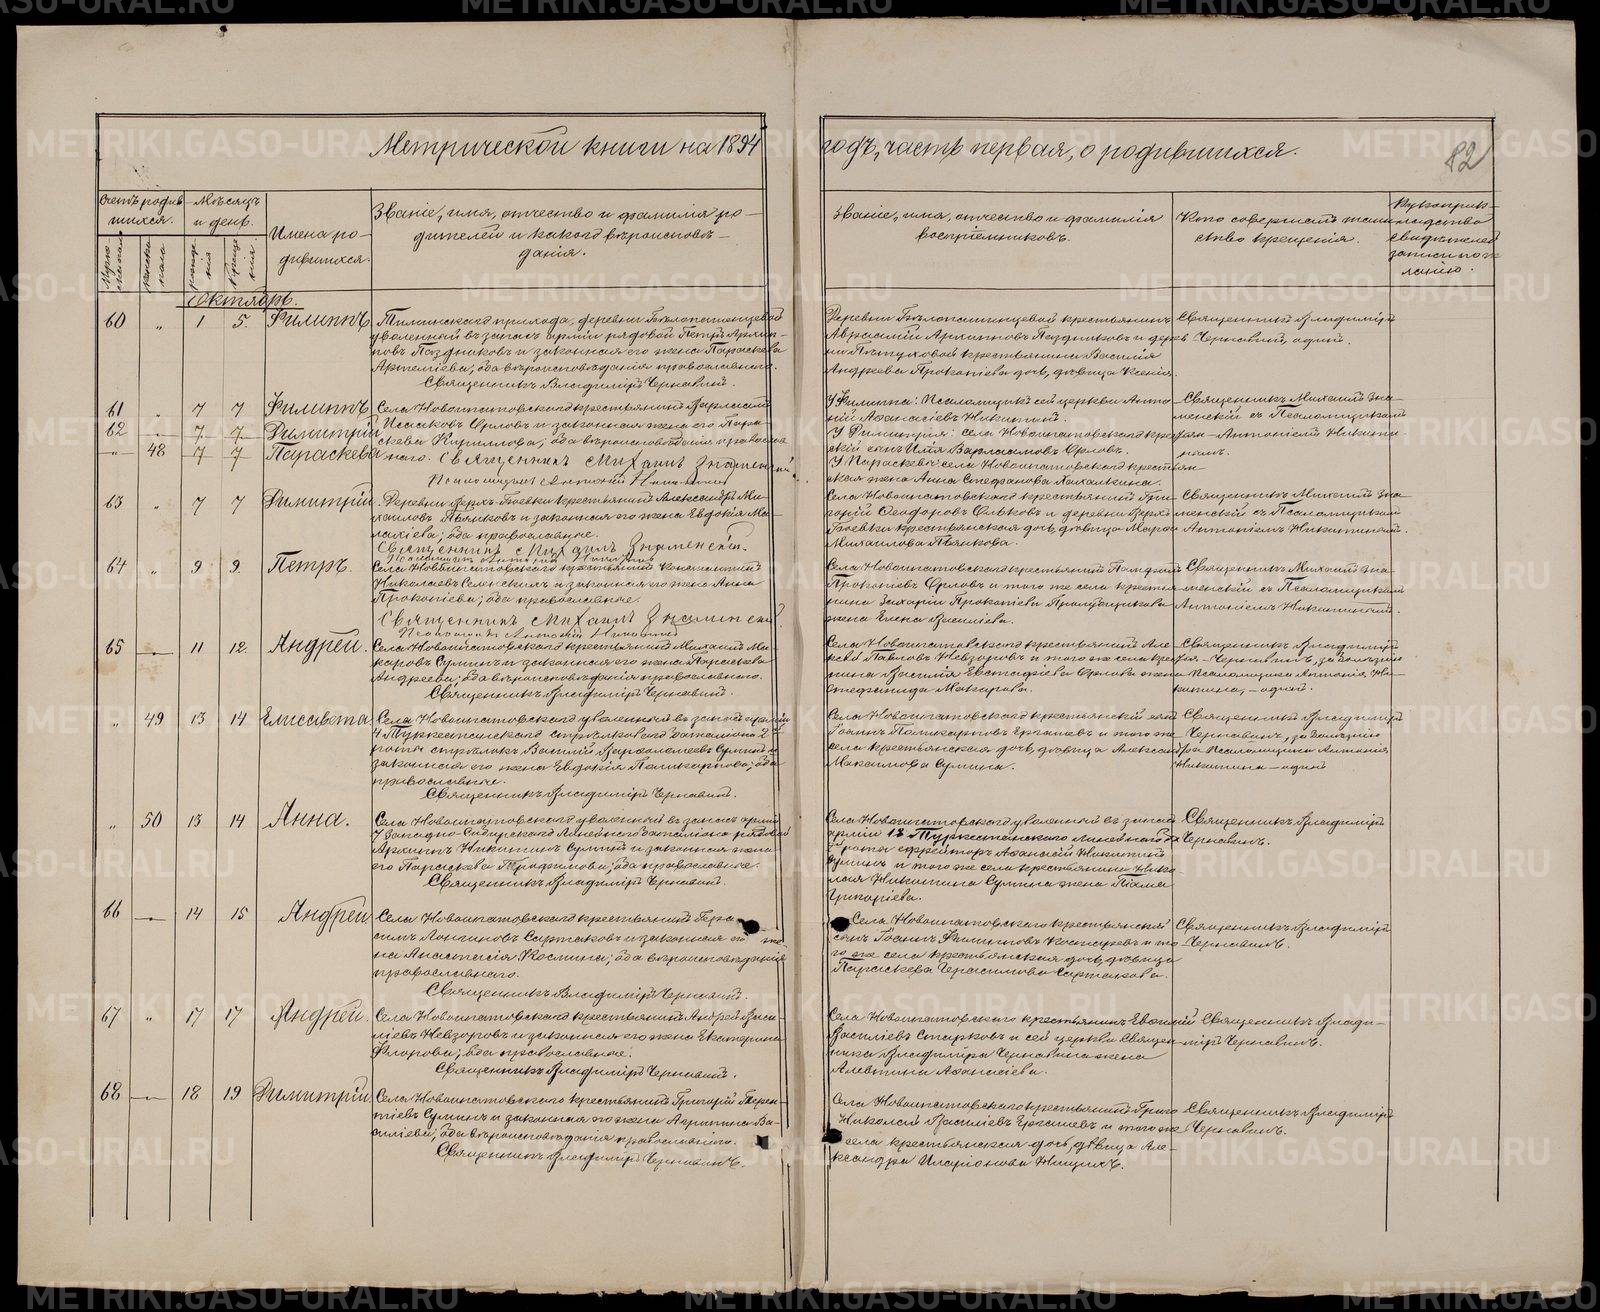 Метрической книги на 1894
годъ, часть первая, о родившихся.
82
Счетъ родив-
шихся.
Мѣсяцъ
и день.
Имена ро-
дившихся.
Званіе, имя, отчество и фамилія ро-
дителей и какого вѣроисповѣ-
данія.
Званіе, имя, отчество и фамилія
воспріемниковъ.
Кто совершалъ таин-
ство крещенія.
Рукоприк-
ладство
свидѣтелей
записи по ж-
ланію.
Октябрь.
60 " 1 5. Филиппъ
прихода, деревни Бѣлопашинцевой
уволенный въ запасъ арміи рядовой Петръ Архип-
повъ Поздняковъ и законная его жена Параскева
Артеміева, оба вѣроисповѣданія православнаго.
Священникъ Владимиръ Чернавинъ.
Деревни Бѣлопашинцевой крестьянинъ
Архипповъ Поздняковъ и дерев-
ни Пѣтуховой крестьянина Василія
Андреева Прокопіева дочь, дѣвица Ксенія.
Священникъ Владиміръ
Чернавинъ, одинъ.
61 " 7 7 Филиппъ
62 " 7 7 Димитрій
" 48 7 7 Параскева
Села Новоипатовскаго крестьянинъ Варлаамъ
Исааковъ Орловъ и законная жена его Пара-
скева Кириллова, оба вѣроисповѣданія православ-
наго. Священникъ Михаилъ Знаменскій
Псаломщикъ Антоній Никитинъ
У Филиппа: Псаломщикъ сей церкви Анто-
ній Аѳанасіевъ Никитинъ.
У Димитрія: села Новоипатовскаго крестьян-
скій сынъ Илія Варлаамовъ Орловъ.
У Параскевы: села Новоипатовскаго крестьян-
ская жена Анна Стефанова
Священникъ Михаилъ Зна-
менскій съ Псаломщикомъ
Антоніемъ Никити-
нымъ.
63 " 7 7 Димитрій
Деревни Верхъ-Боевки крестьянинъ Александръ Ми-
хаиловъ Пьянковъ и законная его жена Евдокія Ма-
лахіева; оба православные.
Священникъ Михаилъ Знаменскій.
Псаломщикъ Антоній Никитинъ
Села Новоипатовскаго крестьянинъ Гри-
горій Ѳеодоровъ Ольковъ и деревни Верхъ-
Боевки крестьянская дочь, дѣвица Мария
Михаилова Пьянкова.
Священникъ Михаилъ Зна-
менскій съ Псаломщикомъ
Антоніемъ Никитинымъ.
64 " 9 9. Петръ.
Села Новоипатовскаго крестьянинъ Константинъ
Николаевъ и законная его жена Анна
Прокопіева; оба православные.
Священникъ Михаилъ Знаменскій.
Псаломщикъ Антоній Никитинъ
Села Новоипатовскаго крестьянинъ
Прокопіевъ Орловъ и того же села крестья-
нина Захаріи Прокопіева
жена Елена Василіева.
Священникъ Михаилъ Зна-
менскій съ Псаломщикомъ
Антоніемъ Никитинымъ.
65 " 11 12. Андрей.
Села Новоипатовскаго крестьянинъ Михаилъ Ма-
каровъ Суминъ и законная его жена Параскева
Андреева; оба вѣроисповѣданія православнаго.
Священникъ Владиміръ Чернавинъ.
Села Новоипатовскаго крестьянинъ Але-
ксѣй Павловъ Невзоровъ и того же села крестья-
нина Василія Евстафіева Орлова жена
Стефанида Макарова.
Священникъ Владиміръ
Чернавинъ, за болѣзнію
Псаломщика Антонія Ни-
китина, - одинъ.
" 49 13 14 Елисавета
Села Новоипатовскаго уволенный въ запасъ арміи
4 Туркестанскаго стрѣлковаго баталіона 2й
роты стрѣлокъ Василій Варѳоломеевъ Суминъ и
законная его жена Евдокія Поликарпова; оба
православные.
Священникъ Владиміръ Чернавинъ.
Села Новоипатовскаго крестьянскій сынъ
Іоаннъ Поликарповъ и того же
села крестьянская дочь, дѣвица Алексан-
Максимова Сумина.
Священникъ Владиміръ
Чернавинъ, за болѣзнію
Псаломщика Антонія
Никитина - одинъ
" 50 13 14 Анна.
Села Новоипатовскаго уволенный въ запасъ арміи
7 Западно-Сибирскаго Линейнаго баталіона рядовой
Архиппъ Никитинъ Суминъ и законная жена
его Параскева Трифонова; оба православные.
Священникъ Владиміръ Чернавинъ.
Села Новоипатовскаго уволенный въ запасъ
арміи 13 Туркестанскаго Линейнаго
роты ефрейторъ Аѳанасій Никитинъ
Суминъ и того же села крестьянина Нико-
лая Никитина Сумина жена
Григоріева.
Священникъ Владиміръ
Чернавинъ.
66 " 14 15 Андрей
Села Новоипатовскаго крестьянинъ Гера-
симъ Лонгиновъ Сартаковъ и законная его же-
на Анастасія Космина; оба вѣроисповѣданія
православнаго.
Священникъ Владиміръ Чернавинъ.
Села Новоипатовскаго крестьянскій
сынъ Іоаннъ Филипповъ Костаревъ и то-
го же села крестьянская дочь, дѣвица
Параскева Герасимова Сартакова.
Священникъ Владиміръ
Чернавинъ.
67 " 17 17 Андрей.
Села Новоипатовскаго крестьянинъ Андрей Васи-
ліевъ Невзоровъ и законная его жена Екатерина
Флорова; оба православные.
Священникъ Владиміръ Чернавинъ.
Села Новоипатовскаго крестьянинъ Евѳимій
Василіевъ Старковъ и сей церкви Священ-
ника Владиміра Чернавина жена
Алевтина Аѳанасіева.
Священникъ Влади-
міръ Чернавинъ.
68 " 18 19 Димитрій
Села Новоипатовскаго крестьянинъ Григорій Терен-
тіевъ Суминъ и законная его жена Агриппина Ва-
силіева; оба вѣроисповѣданія православнаго.
Священникъ Владиміръ Чернавинъ.
Села Новоипатовскаго крестьянинъ
Николай Василіевъ и того же
села крестьянская дочь, дѣвица Але-
ксандра Иларіонова
Священникъ Владиміръ
Чернавинъ.
METRIKI.GASO-URAL.RU